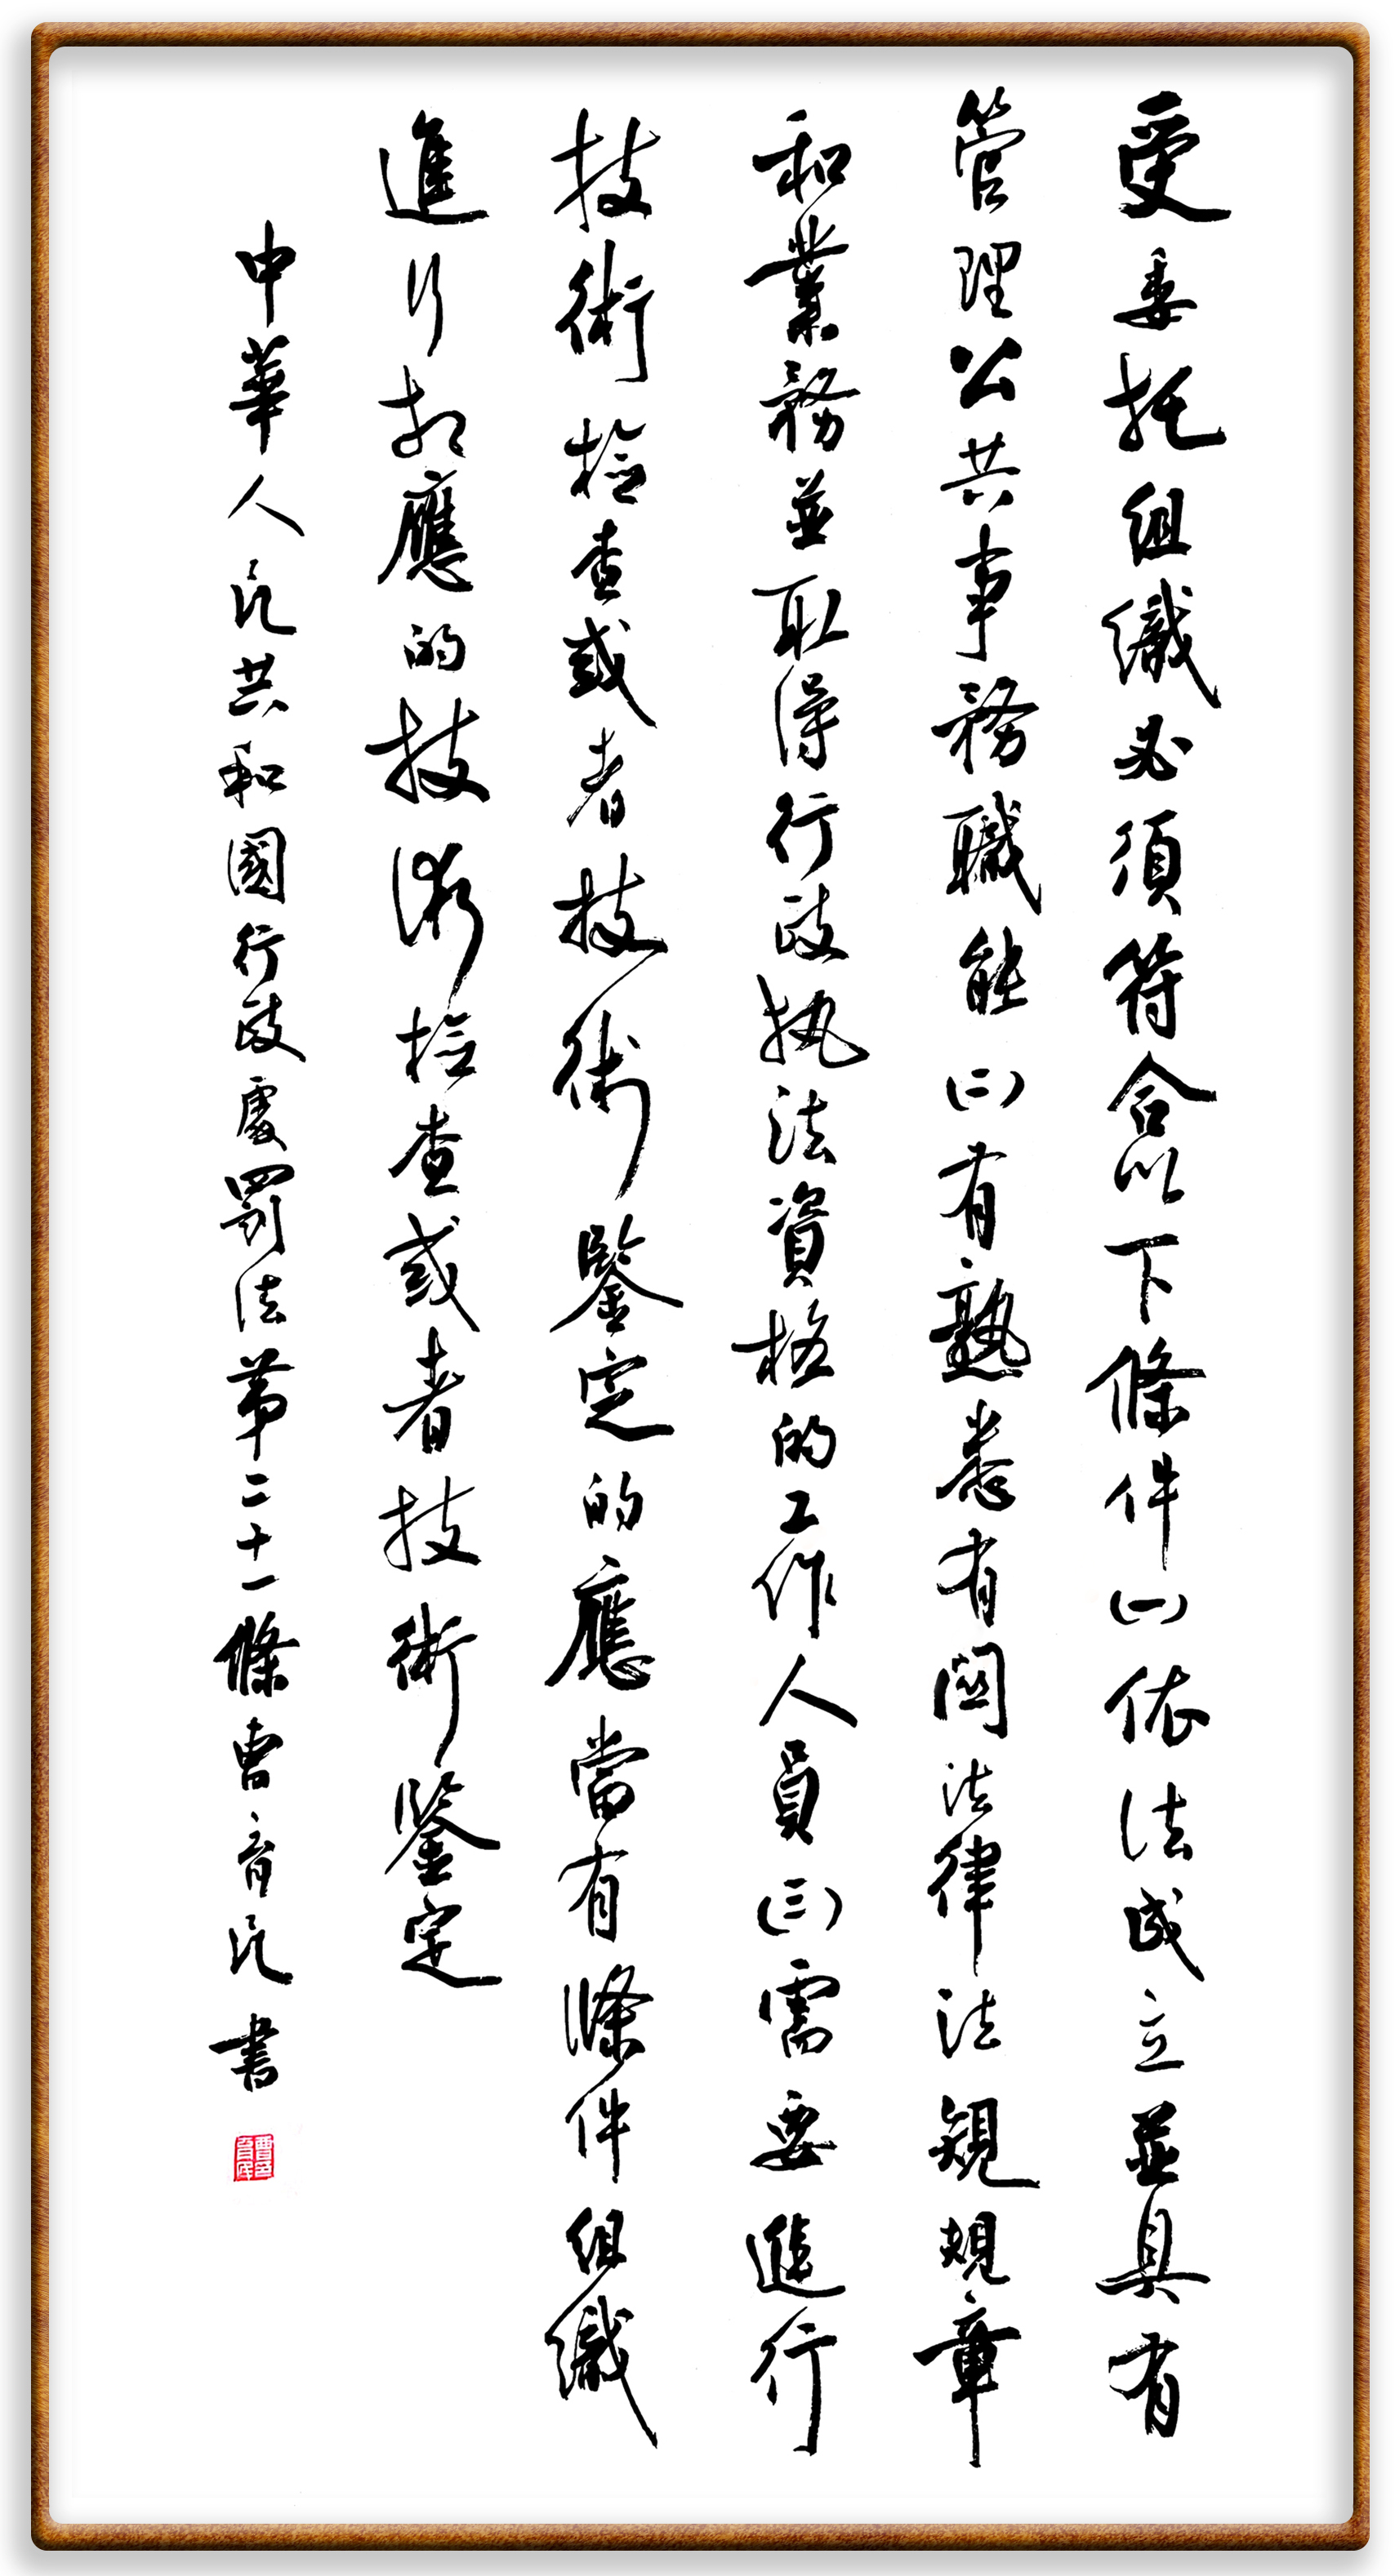 受委托組織必須符合以下條件㈠依法成立並具有
管理公共事務職能㈡有熟悉有關法律法規規章
和業務並取得行政执法資格的工作人員㈢需要進行
技術檢查或者技術鑒定的應當有條件組織
進行相應的技術檢查或者技術鑒定
中華人民共和國行政處罰法第二十一條曹育民書